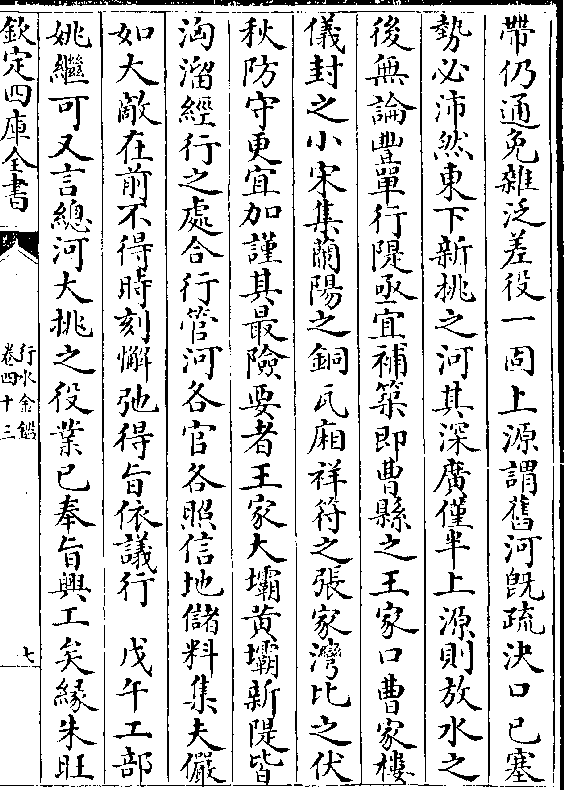 帶仍通免雜泛差役一固上源謂舊河旣疏決口已塞
勢必沛然東下新挑之河其深廣僅半上源則放水之
後無論豐單行隄亟宜補築即曹縣之王家口曹家樓
儀封之小宋集蘭陽之銅瓦廂祥符之張家灣比之伏
秋防守更宜加謹其最險要者王家大壩黄壩新隄皆
洶溜經行之處合行管河各官各照信地儲料集夫儼
如大敵在前不得時刻懈弛得旨依議行　戊午工部
姚繼可又言總河大挑之役業已奉旨興工矣緣朱旺
欽定四庫全書
行水金鑑
卷四十三
七